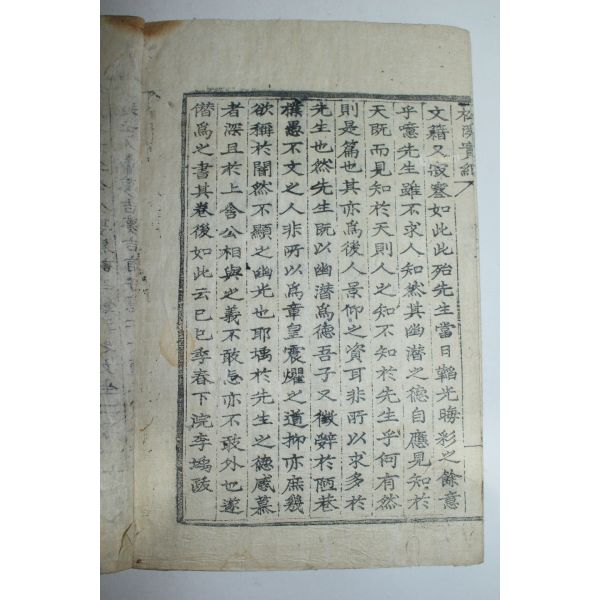 文藉又寂寥如此此殆先生當日韜光晦彩之餘意
乎噫先生雖不求人知然其幽潛之德自應見知於
天既而見知於天則人之知不知於先生乎何有然
則是篇也其亦爲後人景仰之資耳非所以求多於
先生也然先生既以幽潛爲德吾子又徵辭於陋巷
樸愚不文之人非所以爲章皇震燿之道抑亦庶幾
欲稱於闇然不顯之幽光也耶瑀於先生之德感慕
者深且於上舍公相與之義不敢忘亦不敢外也遂
僭爲之書其卷後如此云己巳季春下浣李瑀跋